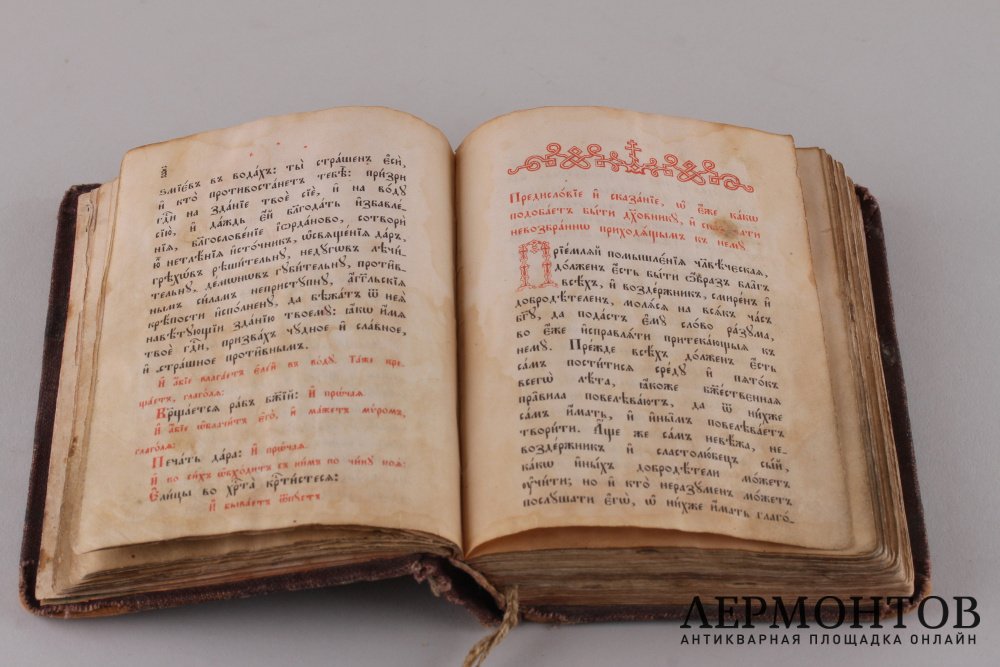 ѕмїє́въ въ вода́хъ: ты̀ стра́шенъ є҆сѝ,
и҆ кто̀ противоста́нетъ тебѣ̀: при́зри
гдⷭ҇и на зда́нїе твоѐ сїѐ, и҆ на во́дꙋ
сїю̀, и҆ да́ждь є҆́й блгⷣть и҆збавле́-
нїѧ, блгⷭ҇ве́нїе і҆ѻрда́ново, сотворѝ
ю҆̀ нетлѣ́нїѧ и҆сто́чникъ, ѡ҆сщ҃е́нїѧ да́ръ,
грѣхѡ́въ рѣши́тельнꙋ, недꙋ́гѡвъ лѣчи́-
тельнꙋ, де́мѡнѡвъ гꙋби́тельнꙋ, проти́в-
нымъ си́ламъ непристꙋ́пнꙋ, а҆́гг҃льскїѧ
крѣ́пости и҆спо́лненꙋ, да бѣжа́тъ ѿ неѧ̀
навѣ́тꙋющїи зда́нїю твоемꙋ̀: ꙗ҆́кѡ и҆́мѧ
твоѐ гдⷭ҇и, призва́хъ чꙋ́дное и҆ сла́вное,
и҆ стра́шное проти́внымъ.
И҆ а҆́бїе влага́етъ є҆ле́й въ во́дꙋ. Та́же кре-
ща́етъ, глаго́лѧ: И҆ про́чаѧ
Крⷭ҇ща́етсѧ ра́бъ бж҃їй: И҆ про́чаѧ
И҆ а҆́бїе ѡ҆блачи́тъ є҆го̀, и҆ ма́жетъ мѵ́ромъ,
глаго́лѧ:
Печа́ть да́ра: И҆ про́чаѧ
И҆ во си́хъ ѡ҆бхо́дитъ съ ни́мъ по чи́нꙋ поѧ̀:
Є҆ли́цы во хрⷭ҇та̀ крⷭ҇ти́стесѧ:
И҆ быва́етъ ѿпꙋ́стъ
Предисло́вїе и҆ сказа́нїе, ѡ҆ є҆́же ка́кѡ
подоба́етъ бы́ти дꙋхо́вникꙋ, и҆ сказа́ти
невозбра́ннѡ приходѧ́щымъ къ немꙋ̀
Прїе́млѧй помышле́нїѧ чл҃вѣ́ческаѧ,
до́лженъ є҆́сть бы́ти ѡ҆́бразъ бла́гъ
всѣ́хъ, и҆ возде́ржникъ, смире́нъ и҆
добродѣ́теленъ, молѧ́сѧ на всѧ́къ ча́съ
бг҃ꙋ, да пода́стъ є҆мꙋ̀ сло́во ра́зꙋма,
во є҆́же и҆справлѧ́ти притека́ющыѧ къ
немꙋ̀. Пре́жде всѣ́хъ до́лженъ є҆́сть
са́мъ пости́тисѧ сре́дꙋ и҆ пѧто́къ
всегѡ̀ лѣ́та, ꙗ҆́коже бжⷭ҇твеннаѧ
пра́вила повелѣва́ютъ, да ѿ ни́хже
са́мъ и҆́мать, и҆ и҆ны̑мъ повелѣва́етъ
твори́ти. А҆́ще же са́мъ невѣ́жа, не-
возде́ржникъ и҆ сластолю́бецъ сы́й,
ка́кѡ и҆ны́хъ добродѣ́тели мо́жетъ
ᲂу҆чи́ти; но и҆ кто̀ неразꙋ́менъ мо́жетъ
послꙋ́шати є҆гѡ̀, ѡ҆ ни́хже и҆́мать глаго́-
ЛЕРМОНТОВ
АНТИКВАРНАЯ ПЛОЩАДКА ОНЛАЙН